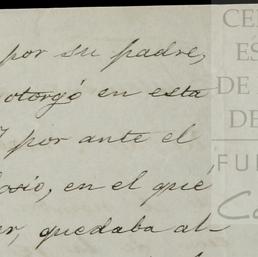 por su padre,
otorgó en esta
por ante el
osio, en el que
er, quedaba al-
CE
ES
DE
DE
FU
Ca